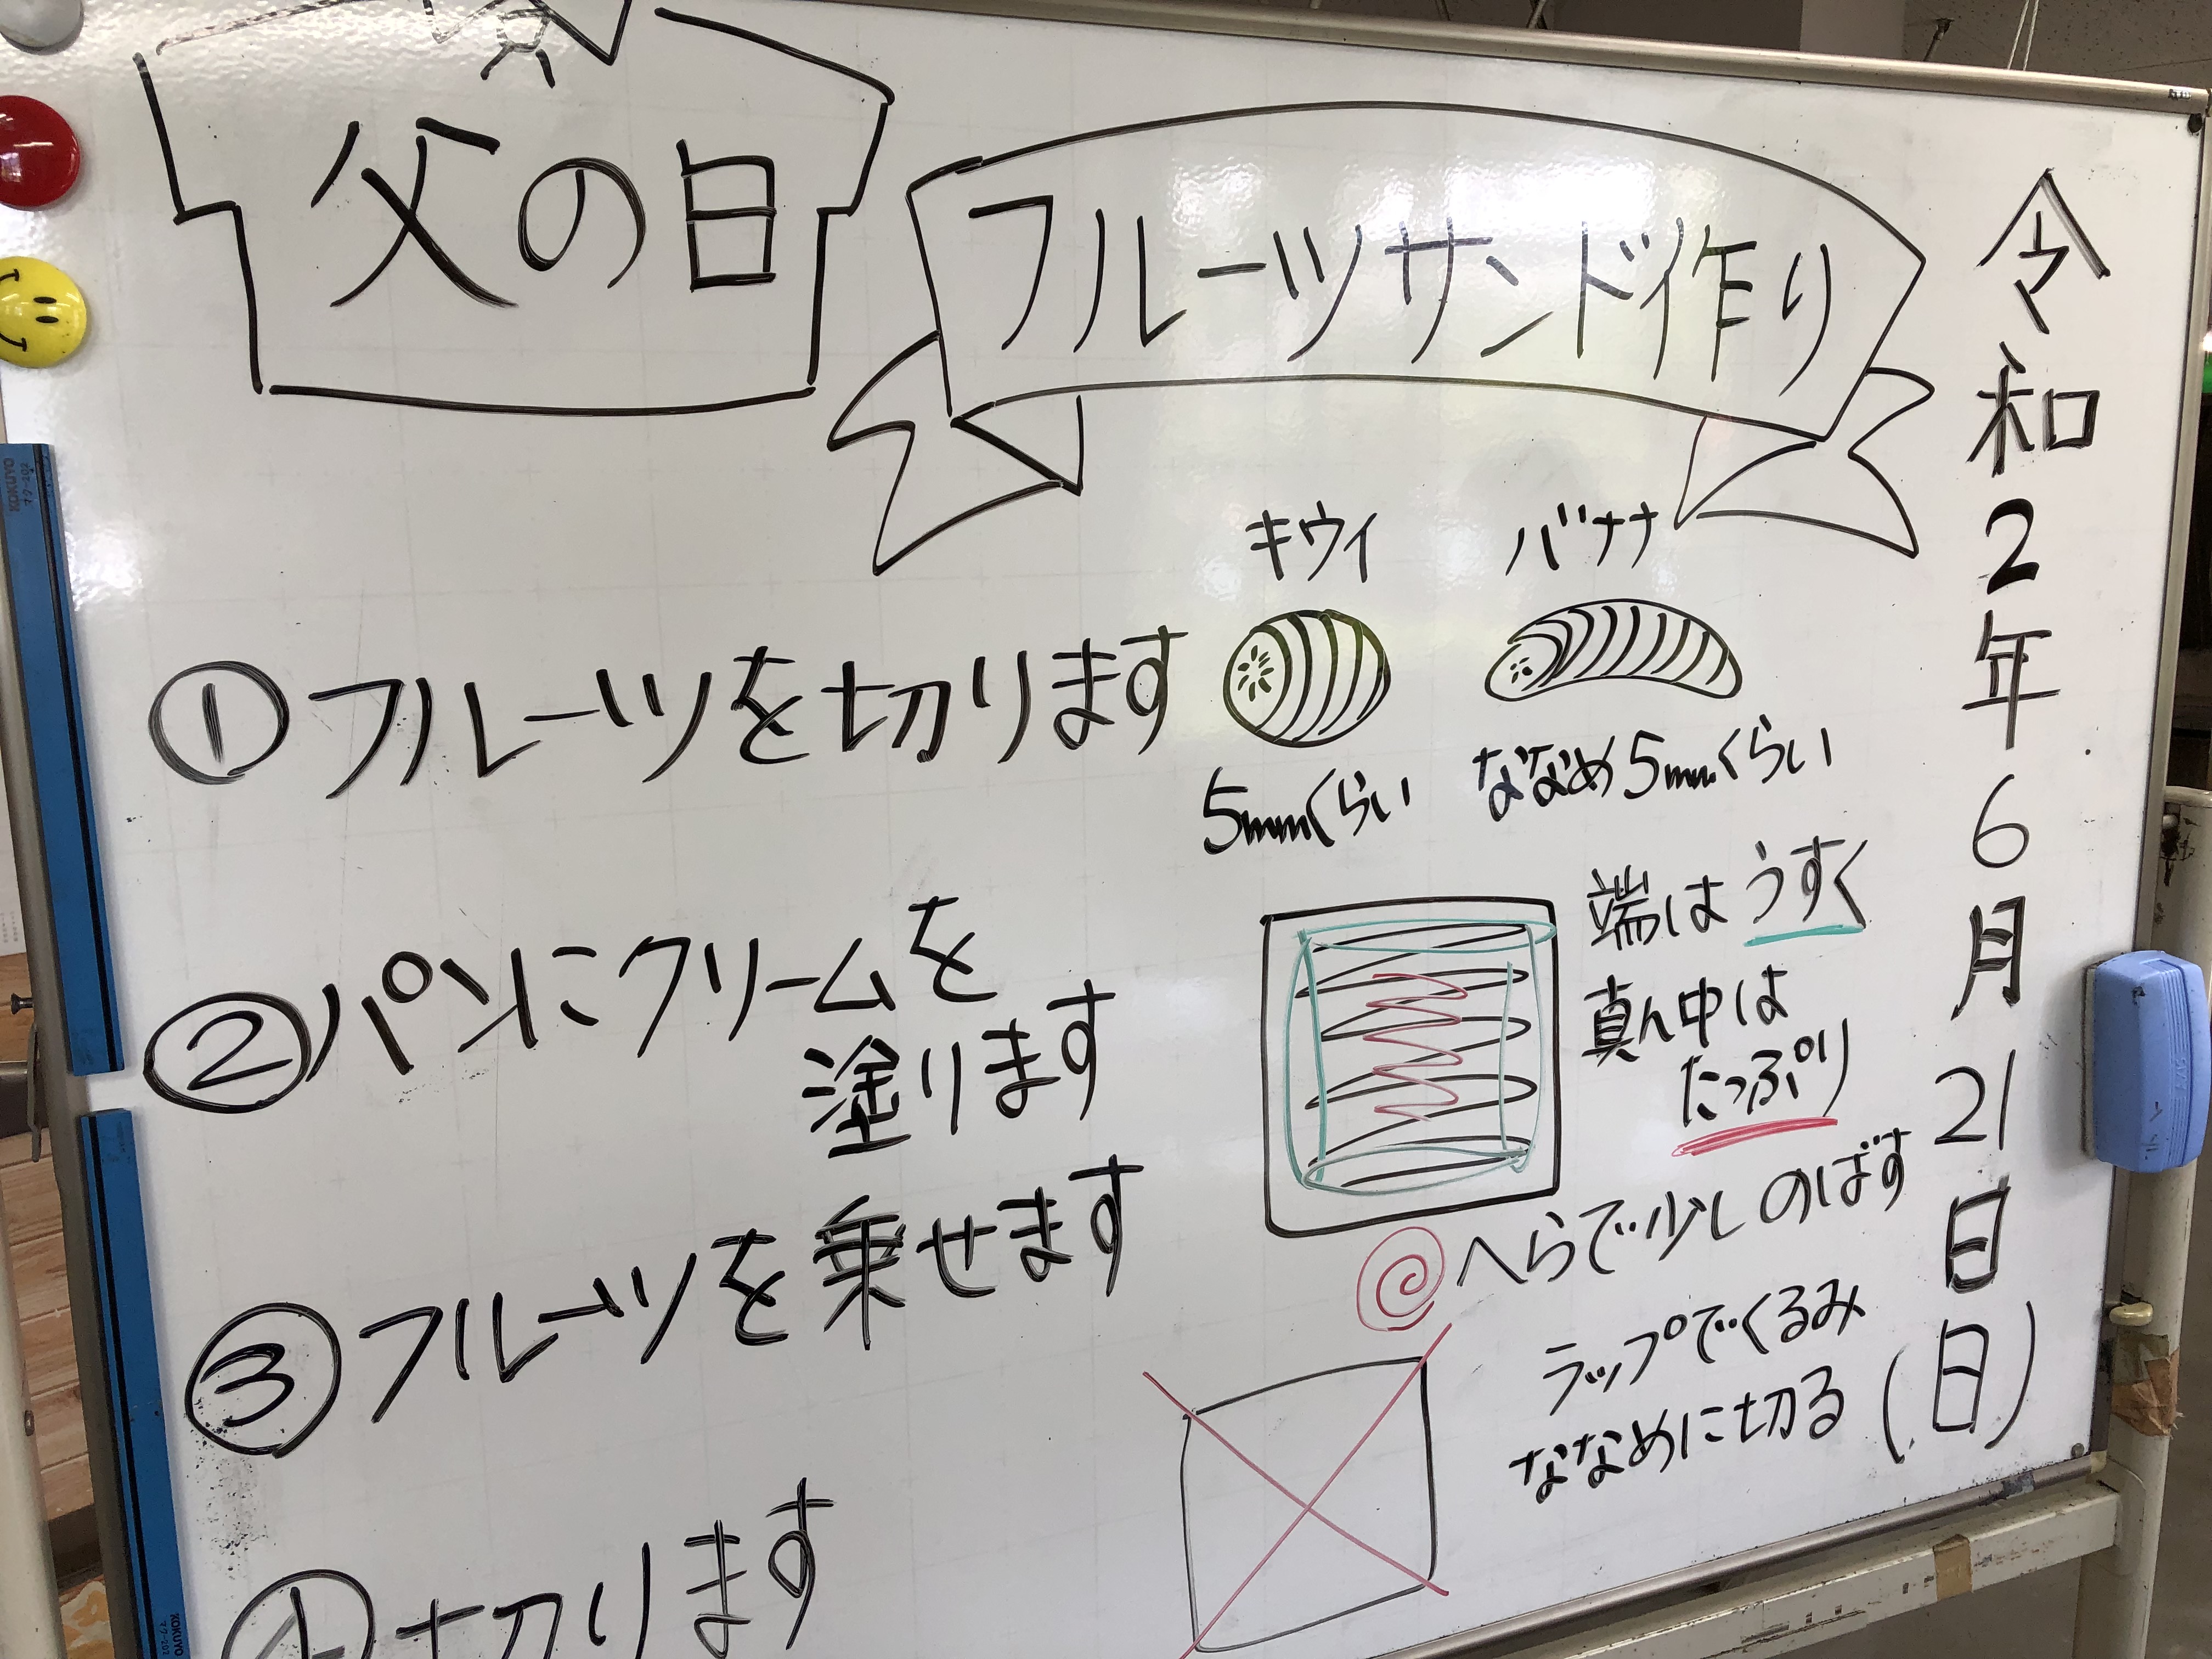 父の日
フルーツサンド作り
令和2年6月21日(日)
①フルーツを切ります
キウィ
5mmくらい
バナナ
ななめ5mmくらい
②パンにクリームを
塗ります
端はうすく
真ん中は
たっぷり
へらで少しのばす
③フルーツを乗せます
ラップでくるみ
ななめに切る
④切ります
KOKUYO
KOKUYO